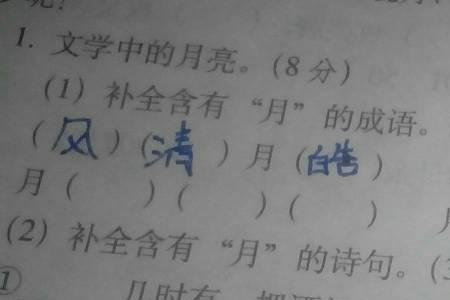 1. 文学中的月亮。(8分)
(1) 补全含有“月”的成语。
(风)(清)月(皓)
月( )( )( )
(2) 补全含有“月”的诗句。(
①
几时有